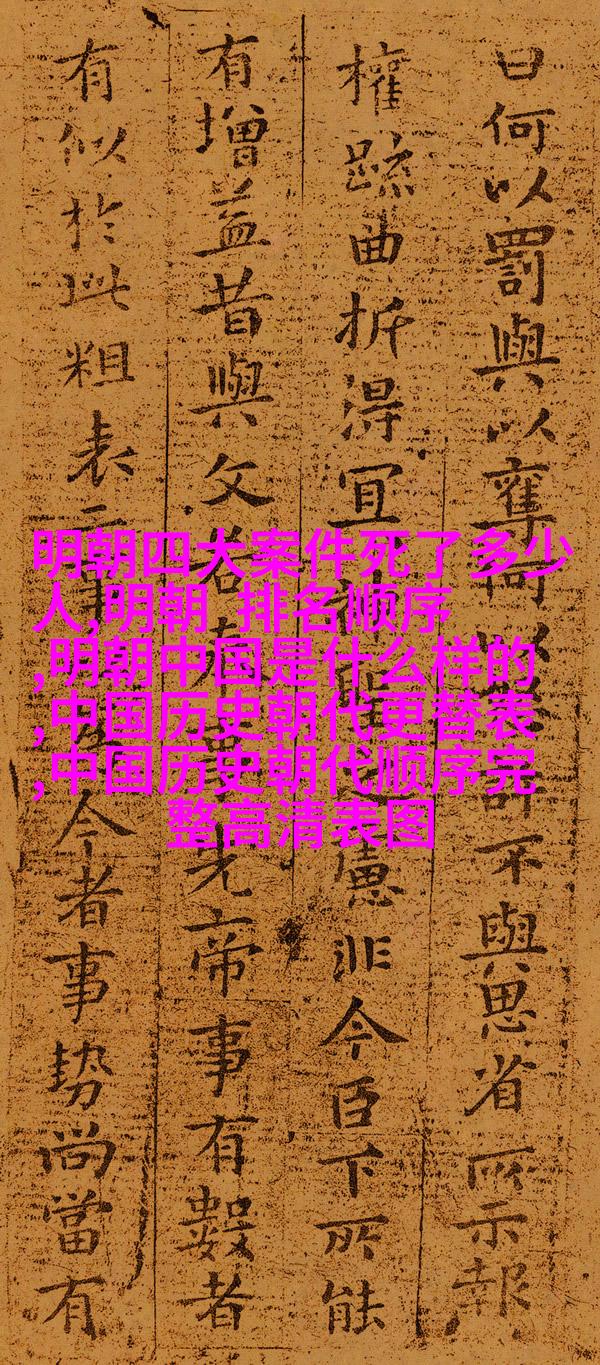 曰何以罰與以奪何以許不與思省所示報
權疏曲折得宜神聖慮非今臣下所能
有增益昔與文若先帝事有數者
有似於此粗表二事今者事勢尚當有
明朝四大案件死了多少
人,明朝 排名顺序
,明朝中国是什么样的
,中国历史朝代更替表
,中国历史朝代顺序完
整高清表图